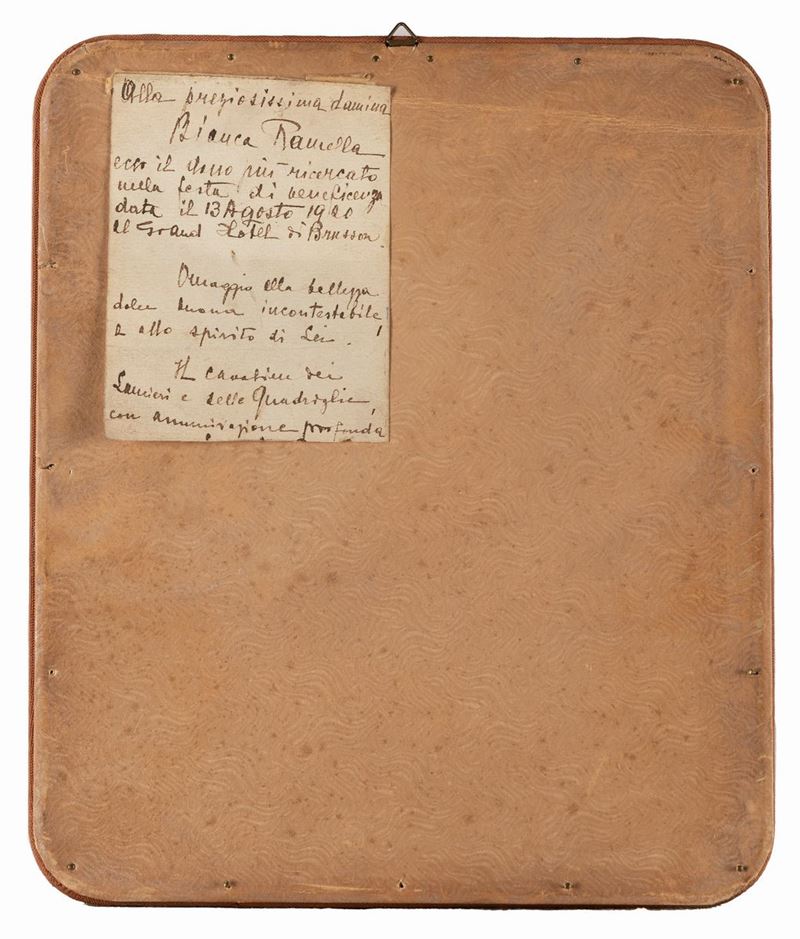 Alla preziosissima damina
Bianca Ramella
ecco il dono più ricercato
nella festa di beneficenza
data il 13 Agosto 1920
al Grand Hotel di Brusson.
Omaggio alla bellezza
dolce buona incontestabile
e allo spirito di Lei. !
Il cavaliere dei
Lancieri e delle Quadriglie,
con ammirazione profonda